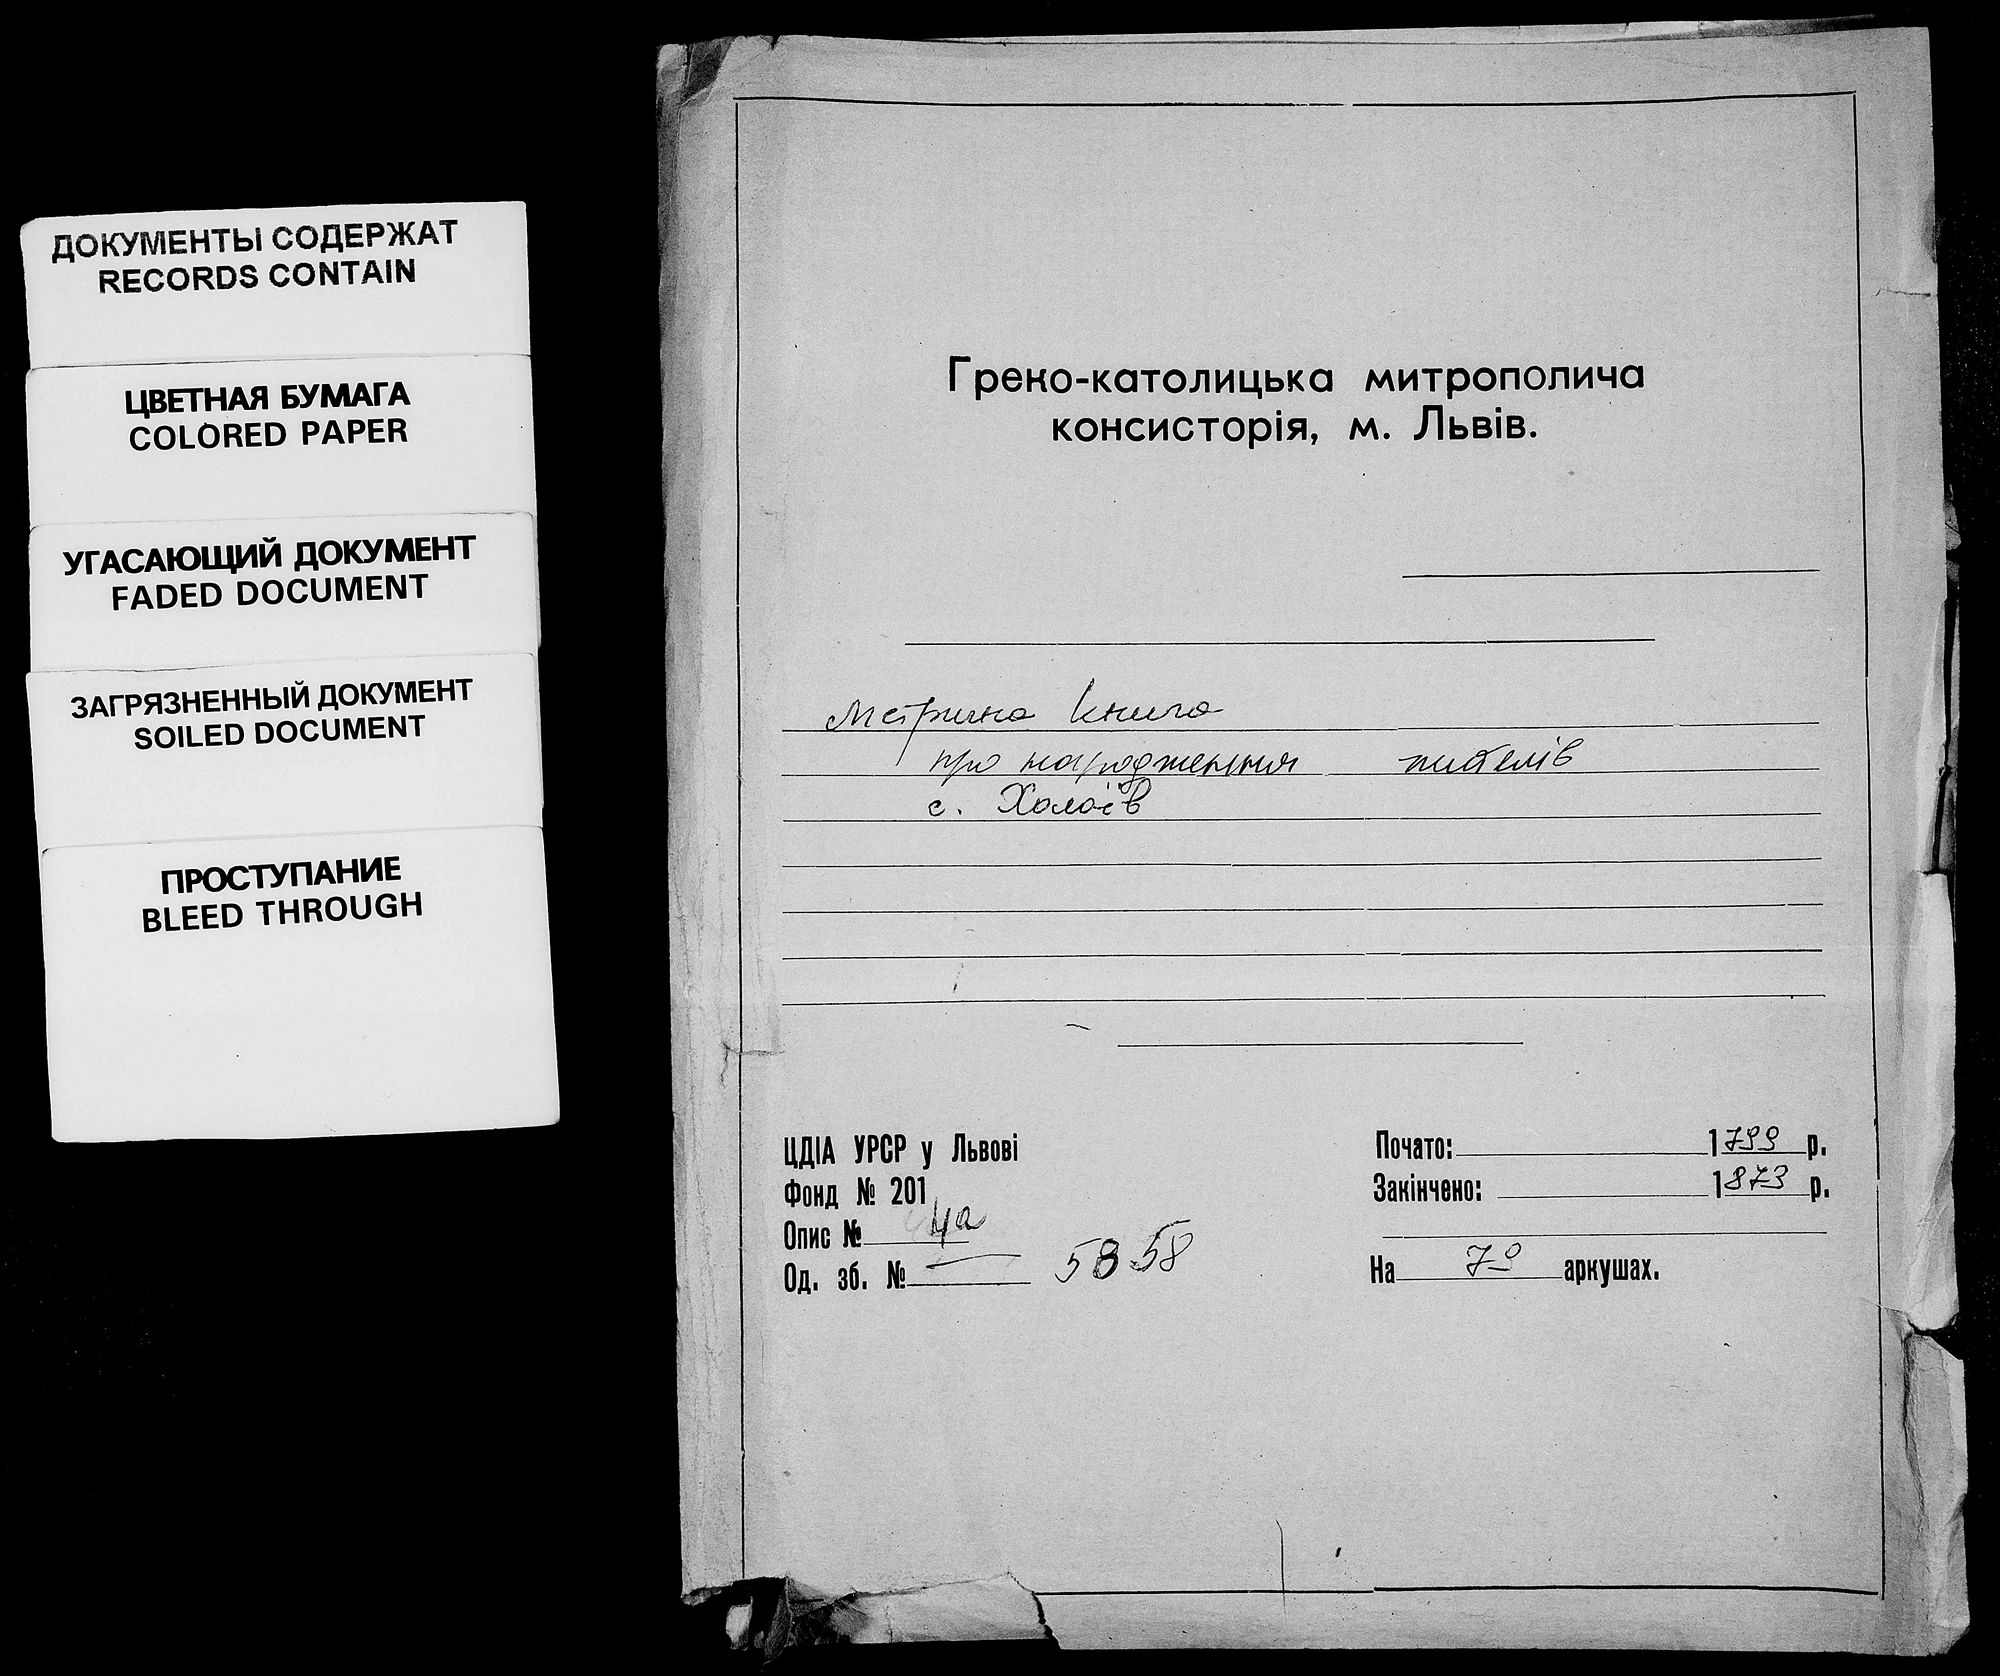 ДОКУМЕНТЫ СОДЕРЖАТ
RECORDS CONTAIN
ЦВЕТНАЯ БУМАГА
COLORED PAPER
УГАСАЮЩИЙ ДОКУМЕНТ
FADED DOCUMENT
ЗАГРЯЗНЕННЫЙ ДОКУМЕНТ
SOILED DOCUMENT
ПРОСТУПАНИЕ
BLEED THROUGH
Греко-католицька митрополича
консисторія, м. Львів.
Метрична книга
про народження жителів
с. Холоїв
ЦДІА УРСР у Львові
Фонд № 201
Опис № 4а
Од. зб. № 5858
Почато: 1799 р.
Закінчено: 1873 р.
На 79 аркушах.